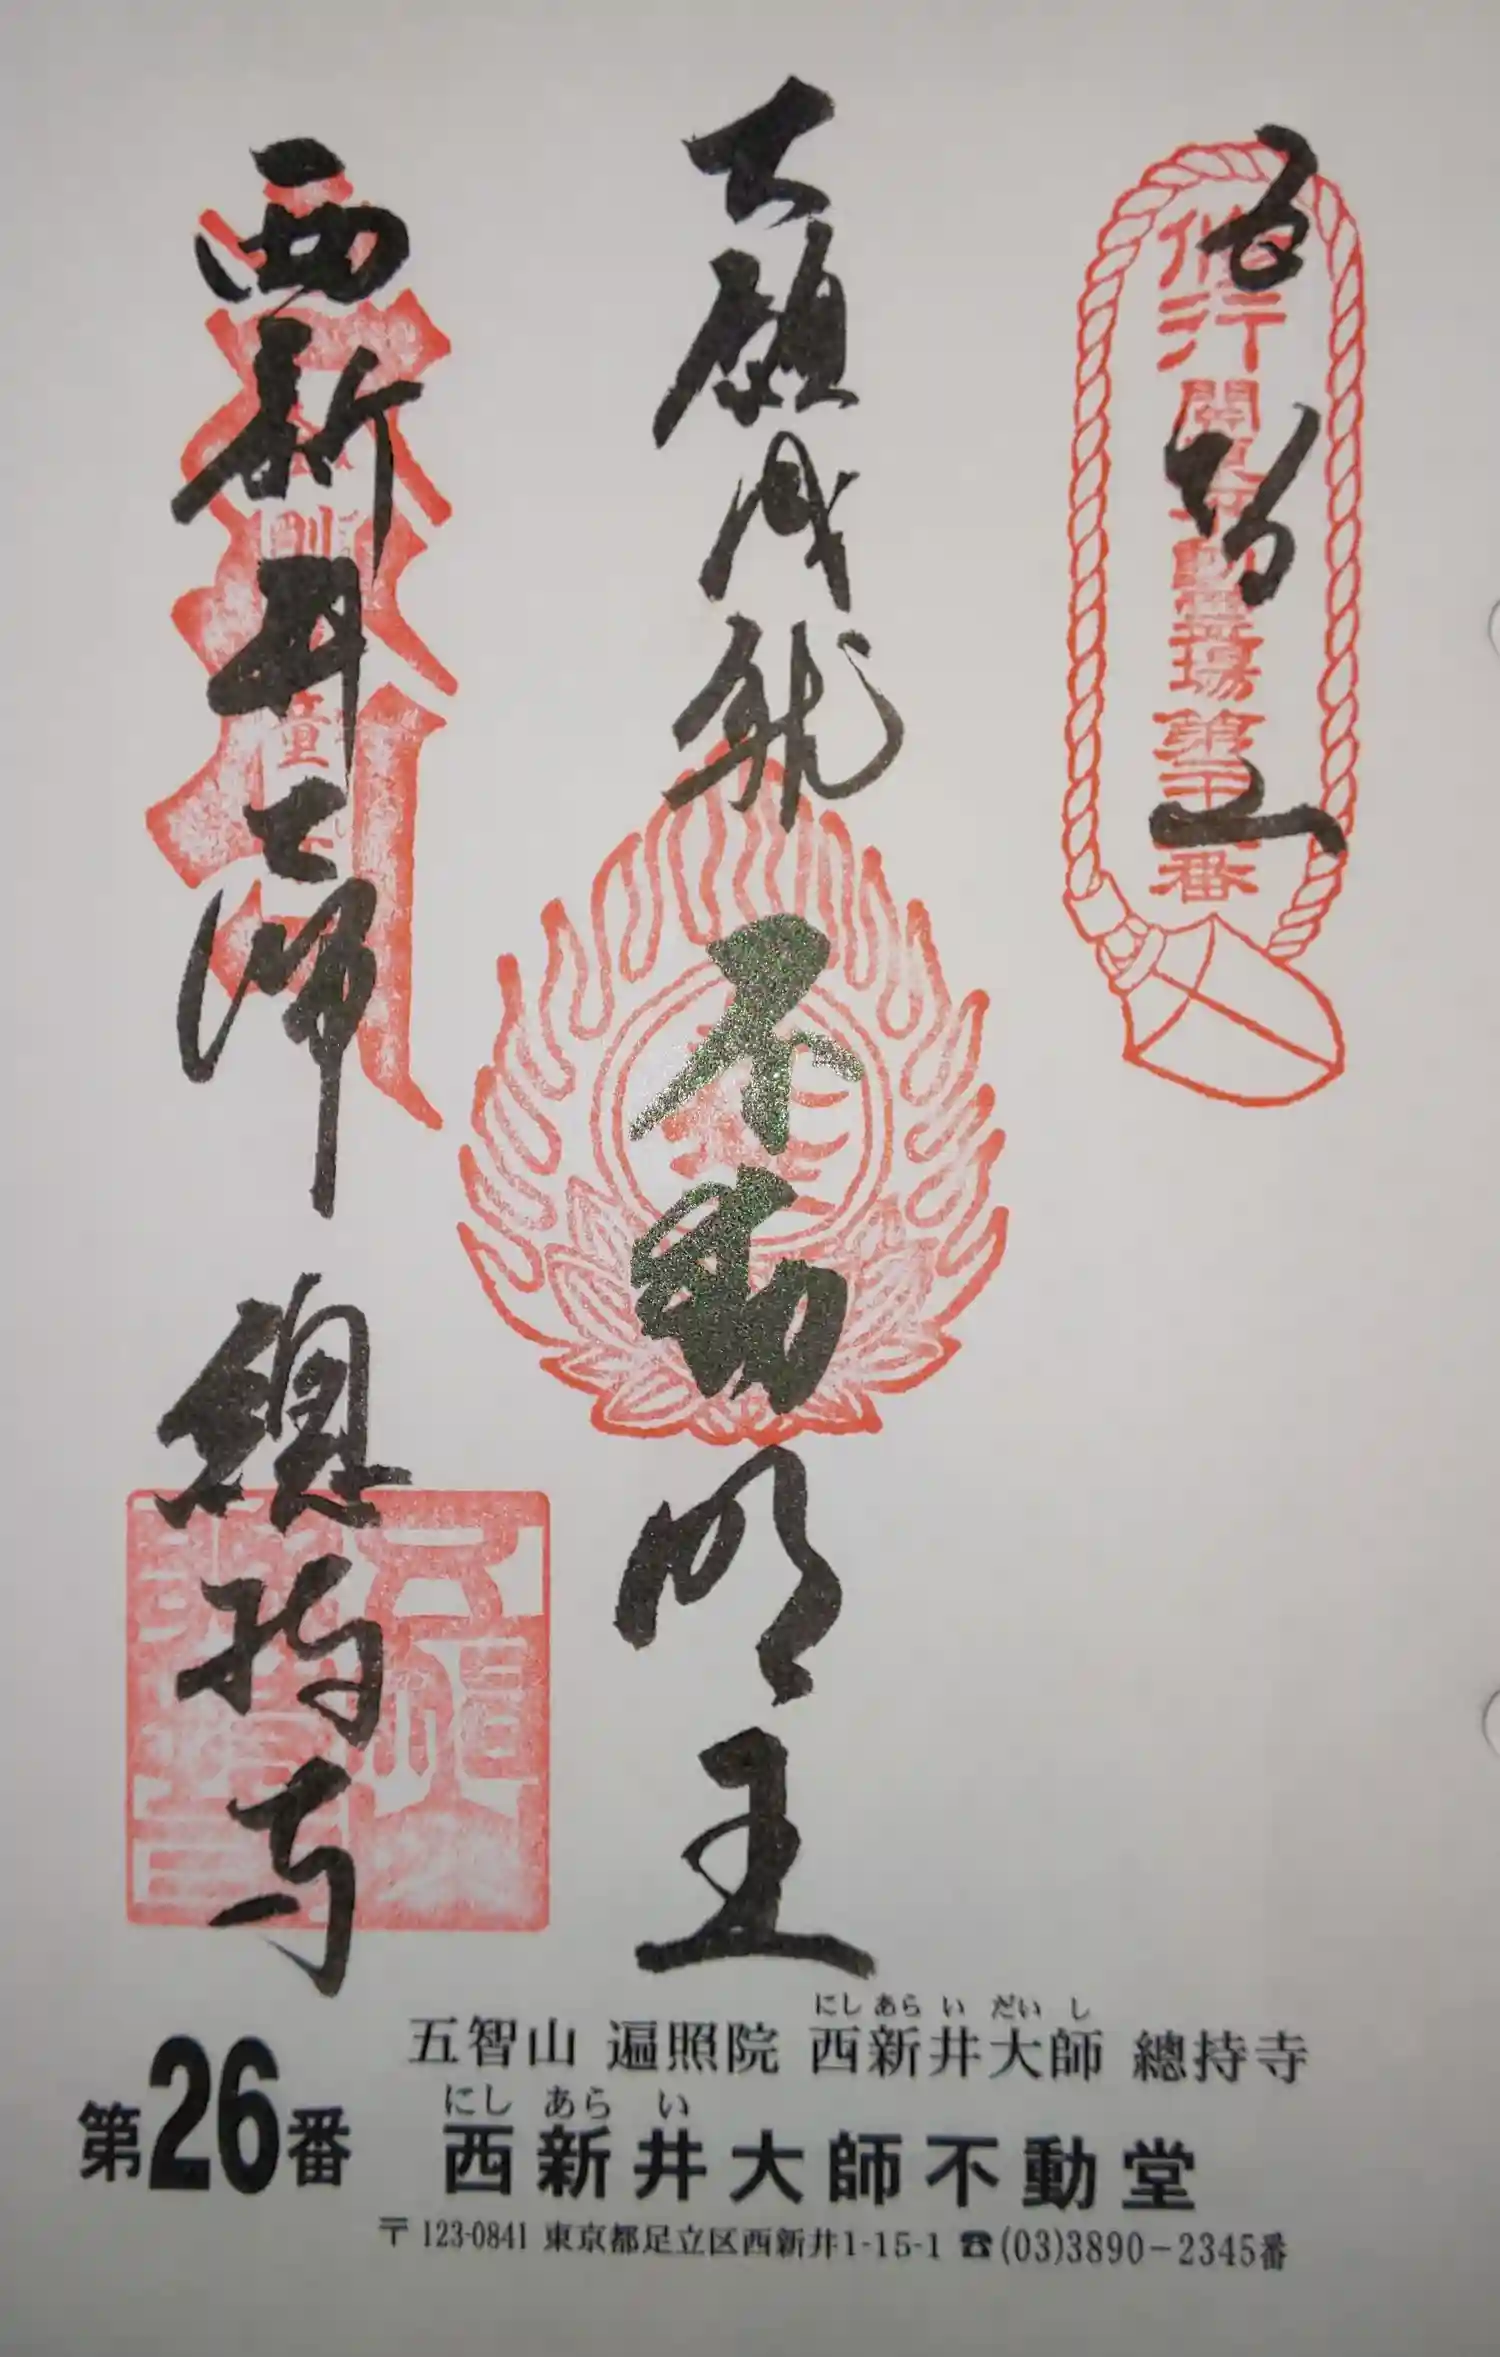 五智山
大願成就 不動明王
西新井大師 總持寺
修行
第26番
にしあらいだいし
五智山 遍照院 西新井大師 總持寺
にしあらい
西新井大師不動堂
〒123-0841 東京都足立区西新井1-15-1 ☎(03)3890-2345番